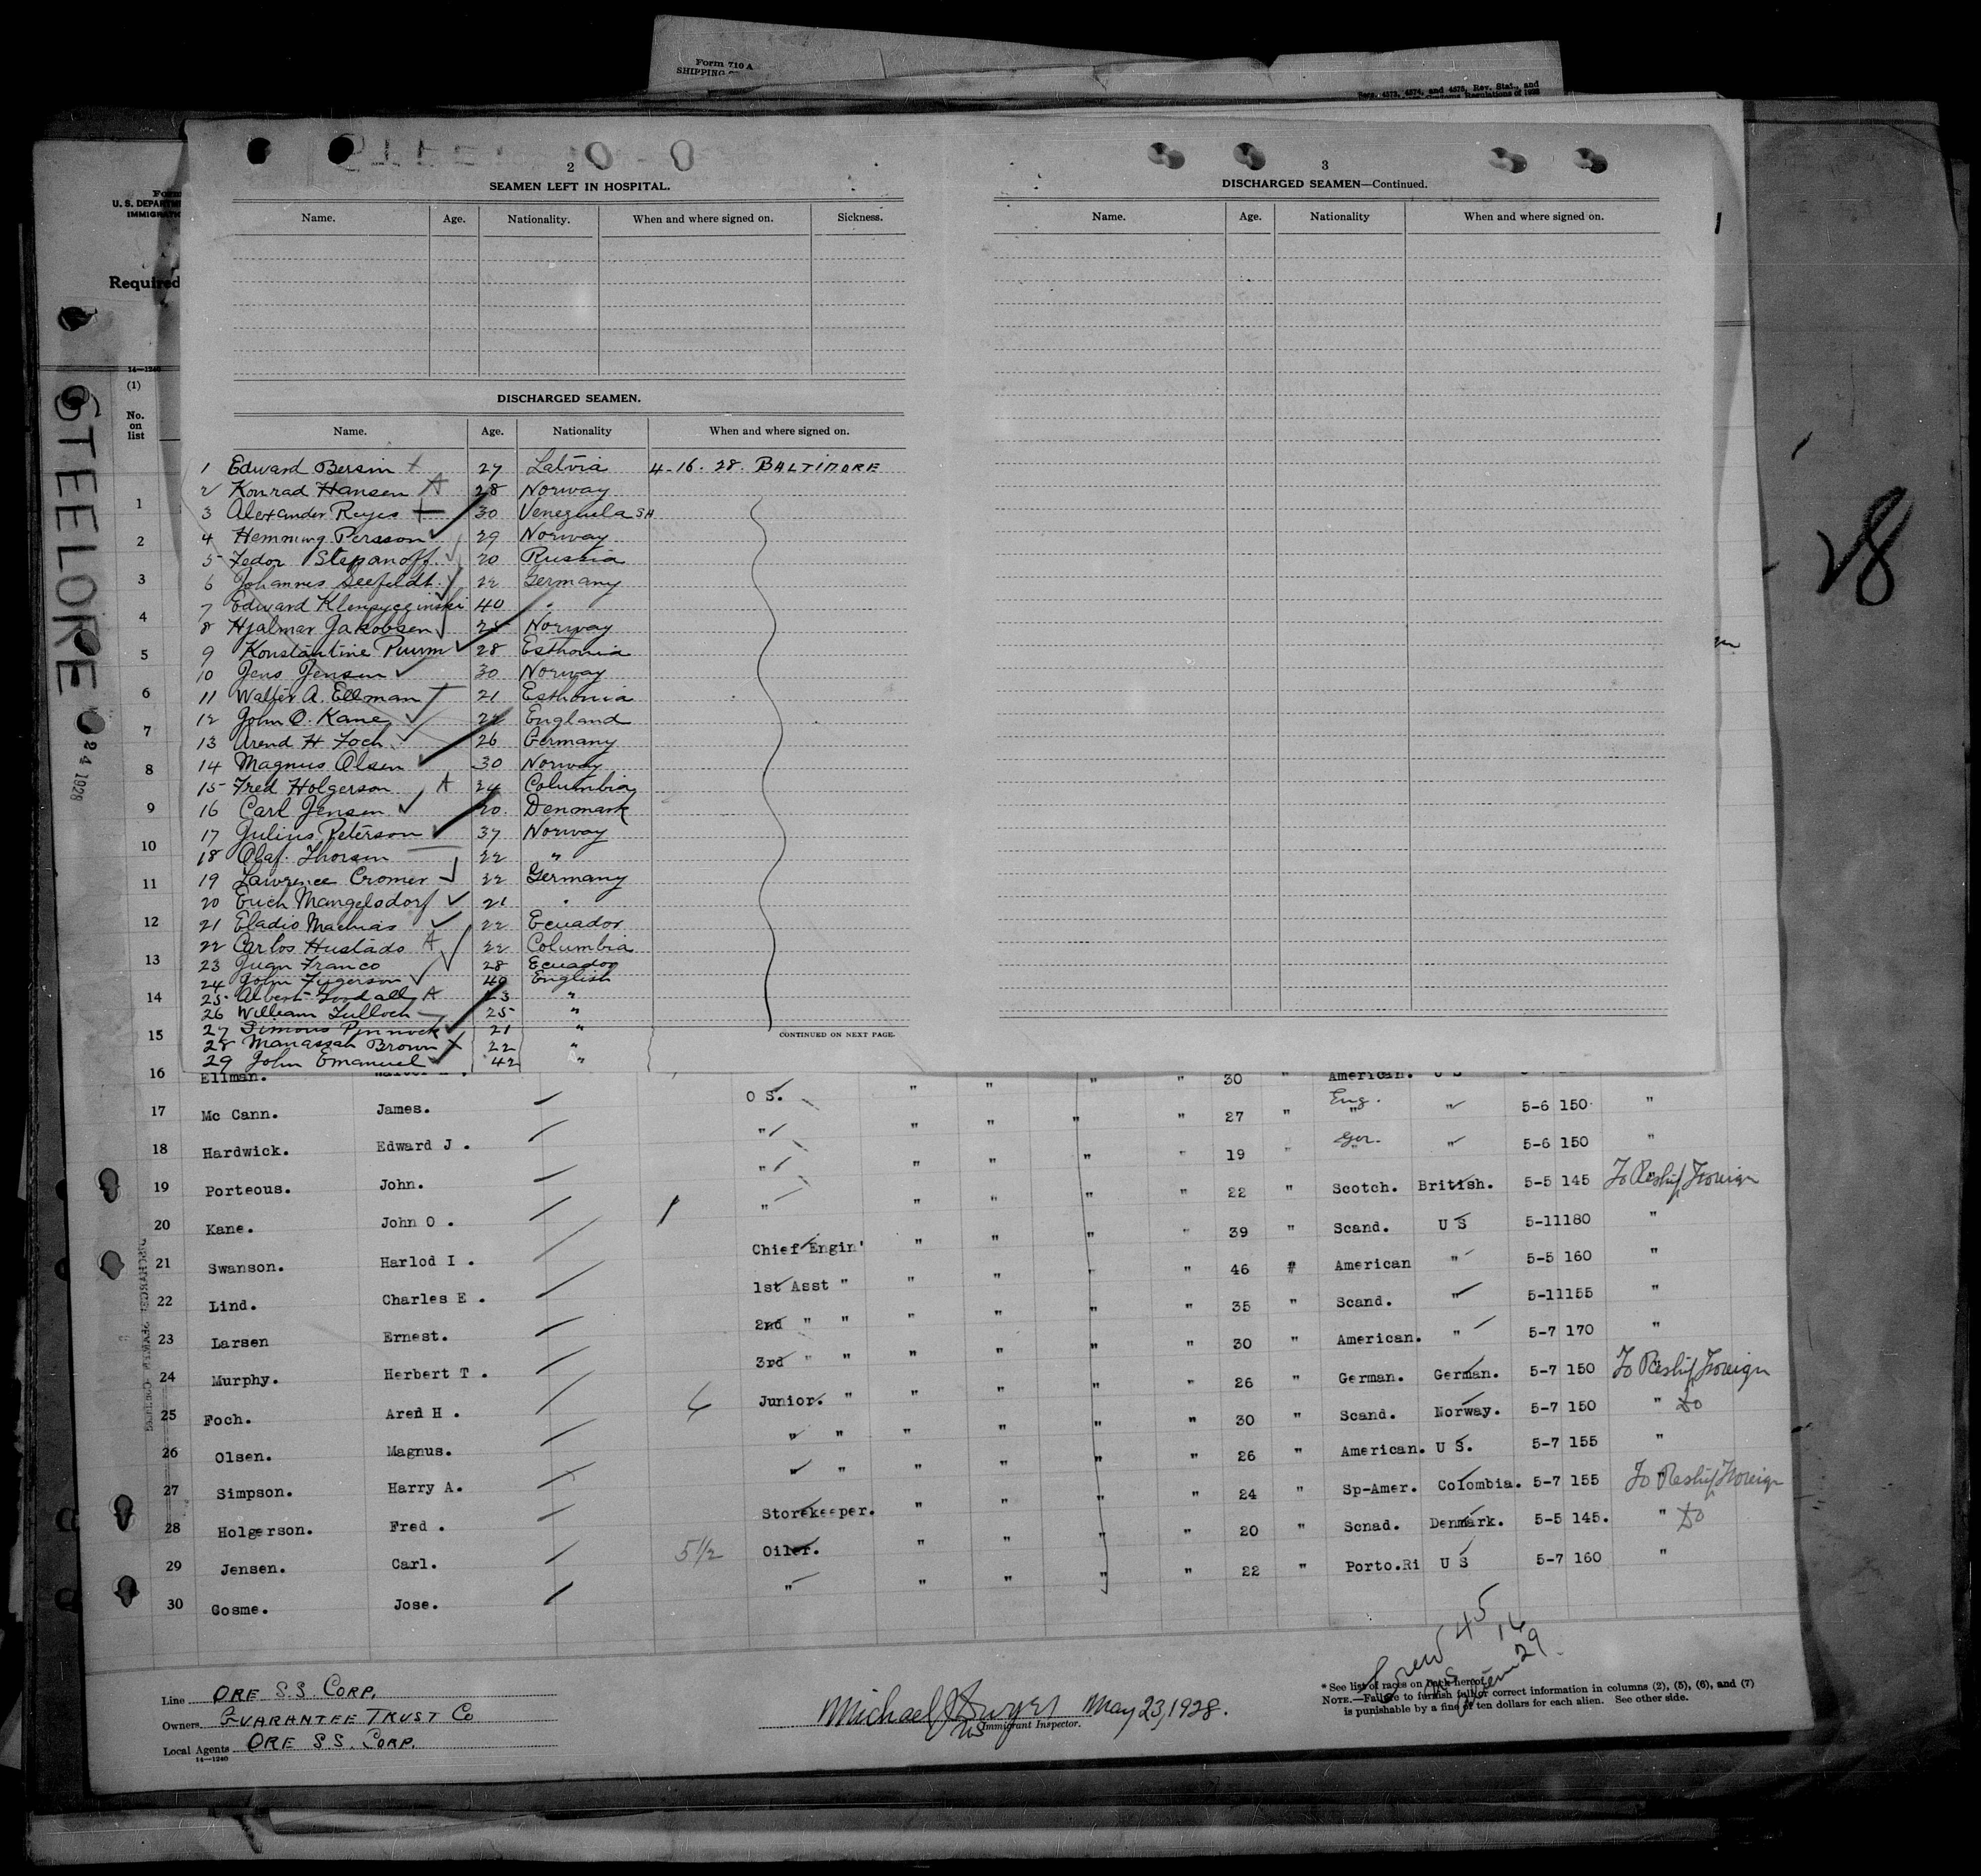 Form 710 A
SHIPPING
Secs. 4573, 4574, and 4575, Rev. Stat., and
Form
U. S. DEPARTME
IMMIGRATIO
Required
14—1240
(1)
No.
on
list
STEELORE
24 1928
28
2
SEAMEN LEFT IN HOSPITAL.
Name. Age. Nationality. When and where signed on. Sickness.
DISCHARGED SEAMEN.
Name. Age. Nationality When and where signed on.
1 Edward Bersin 27 Latvia 4-16-28. BALTIMORE
2 Konrad Hansen A 28 Norway
3 Alexander Reyes 30 Venezuela SA
4 Hemming Persson 29 Norway
5 Fedor Stepanoff 20 Russia
6 Johannes Seefeldt 22 Germany
7 Edward 40 "
8 Hjalmar Jakobsen 25 Norway
9 Konstantine Puurm 28 Esthonia
10 Jens Jensen 30 Norway
11 Walter A. Ellman 21 Esthonia
12 John O. Kane 22 England
13 Arend H Foch 26 Germany
14 Magnus Olsen 30 Norway
15 Fred Holgerson A 24 Columbia
16 Carl Jensen 20 Denmark
17 Julius Peterson 37 Norway
18 Olaf Thorsen 22 "
19 Lawrence Cromer 22 Germany
20 Erich Mangelsdorf 21 "
21 Eladio Machias 22 Ecuador
22 Carlos Hustado A 22 Columbia
23 Juan Franco 28 Ecuador
24 John Figgerson 40 English
25 Albert Goodall A 23 "
26 William Tulloch 25 "
27 Simons Pinnock 21 "
28 Manassah Brown 22 "
29 John Emanuel 42 "
CONTINUED ON NEXT PAGE.
3
DISCHARGED SEAMEN—Continued.
Name. Age. Nationality When and where signed on.
1
2
3
4
5
6
7
8
9
10
11
12
13
14
15
16 Ellman. " " " " 30 " American.
17 Mc Cann. James. O S. " " " " 27 " Eng. " " 5-6 150 "
18 Hardwick. Edward J . " " " " " 19 " Ger. " " 5-6 150 "
19 Porteous. John. " " " " " 22 " Scotch. British. 5-5 145 To Reship Foreign
20 Kane. John O . " " " " " 39 " Scand. U S 5-11 180 "
21 Swanson. Harlod I . Chief Engin' " " " " 46 " American " 5-5 160 "
22 Lind. Charles E . 1st Asst " " " " " 35 " Scand. " 5-11 155 "
23 Larsen Ernest. 2nd " " " " " " 30 " American. " 5-7 170 "
24 Murphy. Herbert T . 3rd " " " " " " 26 " German. German. 5-7 150 To Reship Foreign
25 Foch. Aren H . Junior. " " " " " 30 " Scand. Norway. 5-7 150 " Do
26 Olsen. Magnus. " " " " " " 26 " American. U S. 5-7 155 "
27 Simpson. Harry A. " " " " " " 24 " Sp-Amer. Colombia. 5-7 155 To Reship Foreign
28 Holgerson. Fred . Storekeeper. " " " " 20 " Scnad. Denmark. 5-5 145. " Do
29 Jensen. Carl. 5 1/2 Oiler. " " " " 22 " Porto.Ri U S 5-7 160 "
30 Gosme. Jose. "
Crew 45
US 16
Alien 29
Line ORE S.S. CORP.
Owners GUARANTEE TRUST CO
Local Agents ORE SS. CORP.
14—1240
Michael J Dwyer May 23, 1928.
US Immigrant Inspector.
* See list of races on back hereof.
NOTE.—Failure to furnish full or correct information in columns (2), (5), (6), and (7)
is punishable by a fine of ten dollars for each alien. See other side.